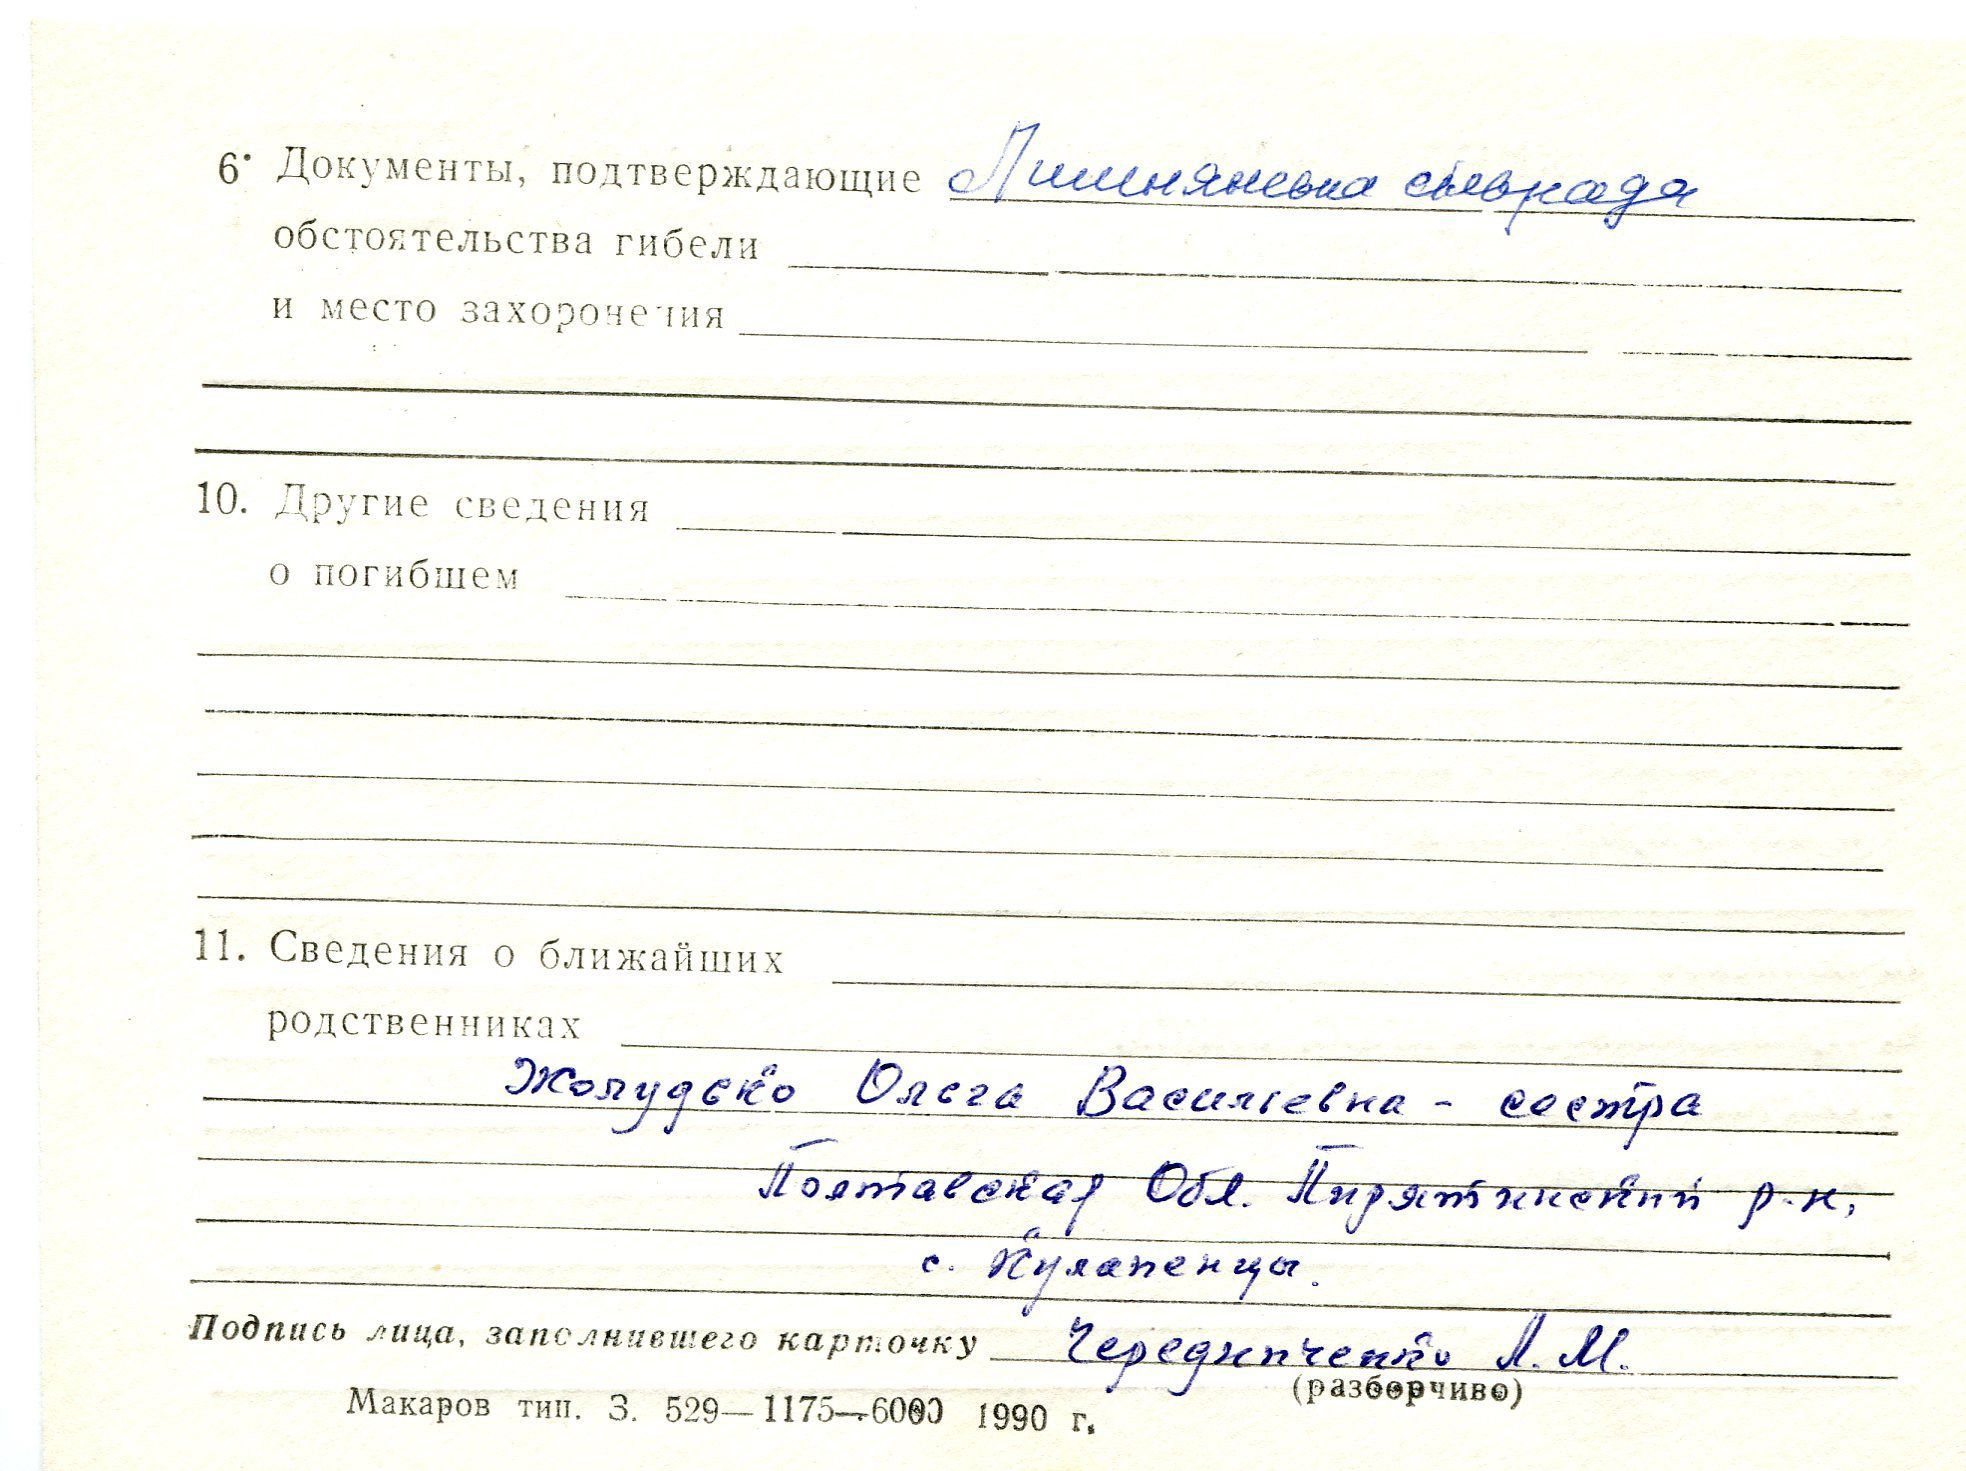 6. Документы, подтверждающие Лишнянська сільрада
обстоятельства гибели
и место захоронения
10. Другие сведения
о погибшем
11. Сведения о ближайших
родственниках
Жолудько Ольга Васильевна - сестра
Полтавская Обл. Пирятинский р-н,
с. Кулапенцы.
Подпись лица, заполнившего карточку Чередниченко Л. М.
(разборчиво)
Макаров тип. З. 529—1175—6000 1990 г.